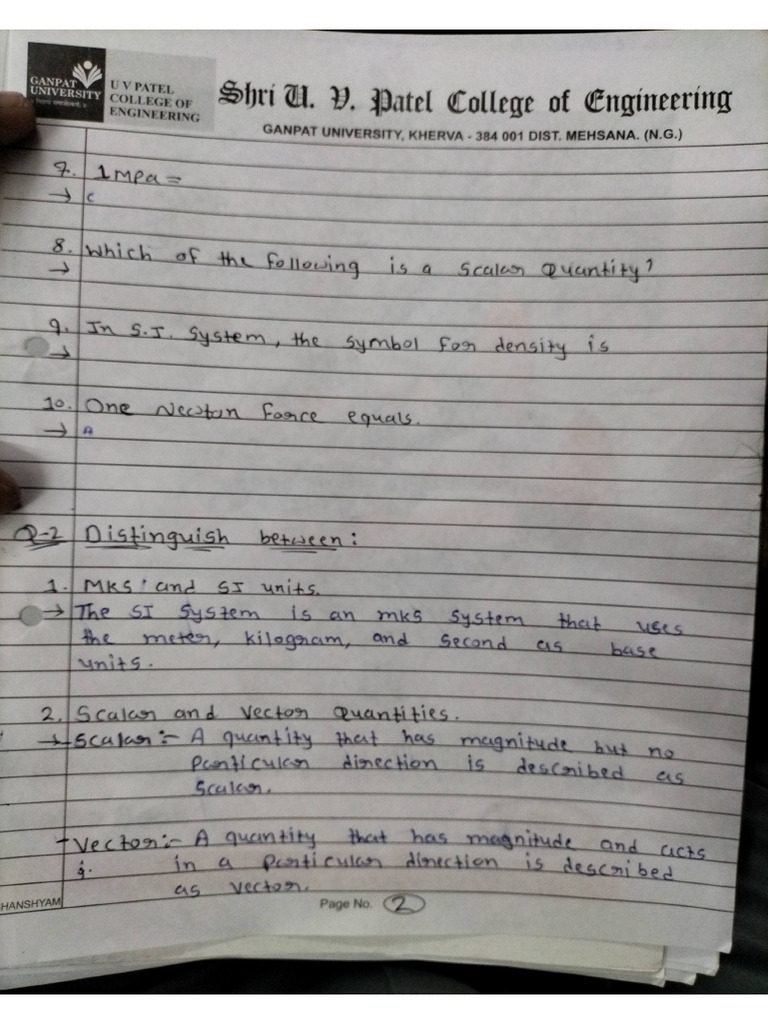 GANPAT
UNIVERSITY
U V PATEL
COLLEGE OF
ENGINEERING
Shri U. V. Patel College of Engineering
GANPAT UNIVERSITY, KHERVA - 384 001 DIST. MEHSANA. (N.G.)
7. 1 MPa =
→ C
8. Which of the following is a scalar quantity?
→
9. In S.I. system, the symbol for density is
→
10. One Newton force equals.
→ A
Q-2 Distinguish between:
1. MKS and SI units.
→ The SI system is an mks system that uses
the meter, kilogram, and second as base
units.
2. Scalar and vector quantities.
→ Scalar :- A quantity that has magnitude but no
particular direction is described as
scalar.
- Vector :- A quantity that has magnitude and acts
in a particular direction is described
as vector.
HANSHYAM
Page No. 2